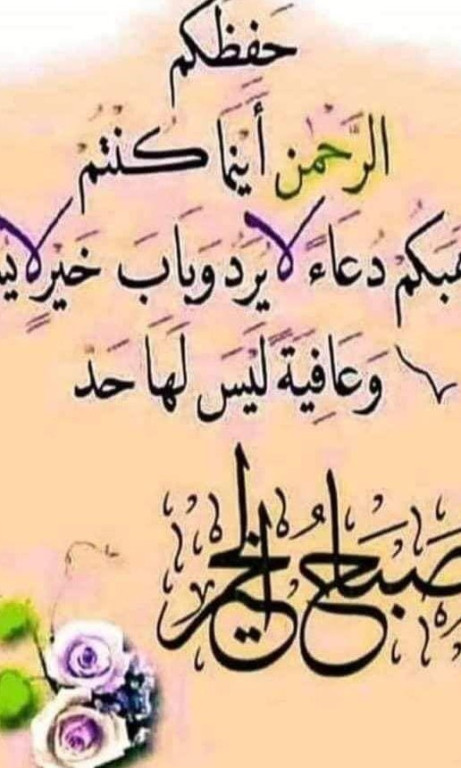 حَفِظَكُم
الرَّحْمٰن أَيْنَمَا كُنْتُمْ
دُعَاءً لا يُرَدُ وَبَابَ خَيْرٍ لا
وَعَافِيَةً لَيْسَ لَهَا حَدْ
صباح الخير